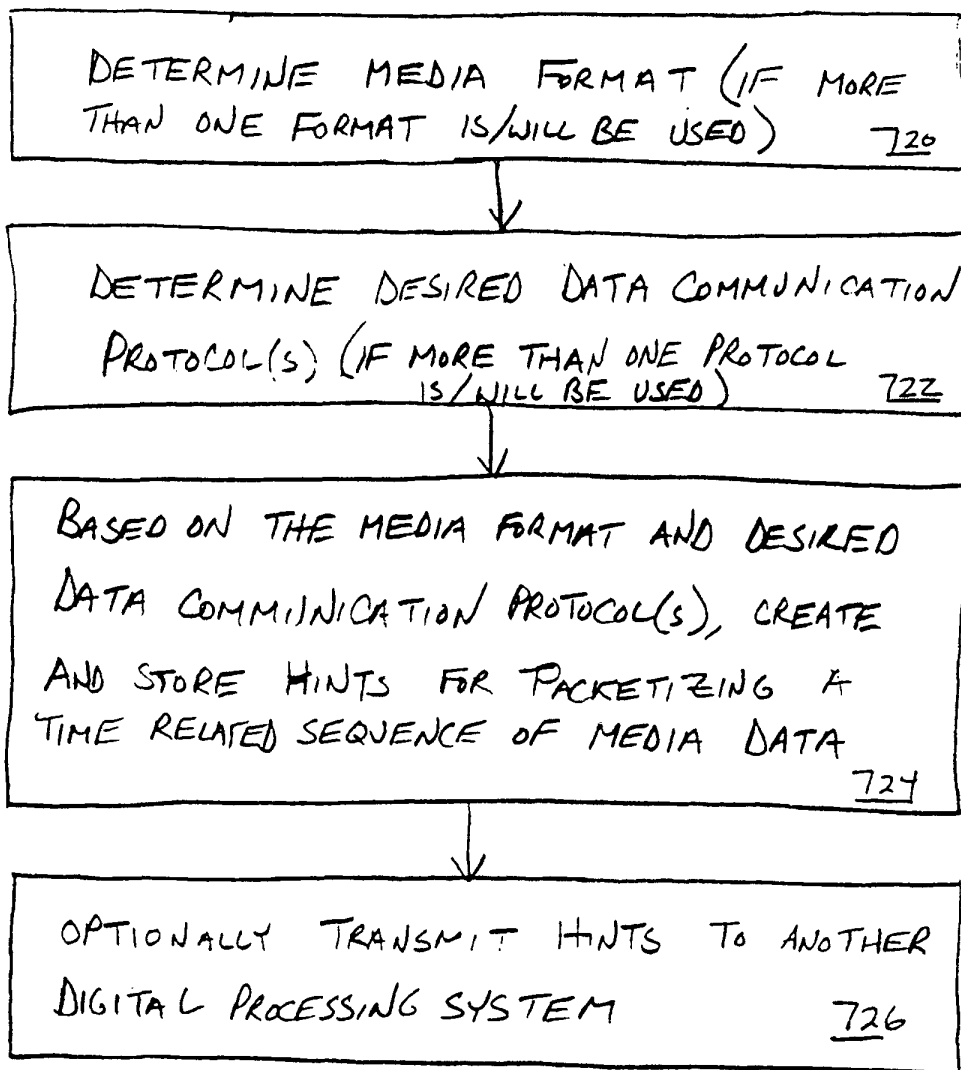 DETERMINE MEDIA FORMAT (IF MORE
THAN ONE FORMAT IS/WILL BE USED)
720
DETERMINE DESIRED DATA COMMUNICATION
PROTOCOL(S) (IF MORE THAN ONE PROTOCOL
IS/WILL BE USED)
722
BASED ON THE MEDIA FORMAT AND DESIRED
DATA COMMUNICATION PROTOCOL(S), CREATE
AND STORE HINTS FOR PACKETIZING A
TIME RELATED SEQUENCE OF MEDIA DATA
724
OPTIONALLY TRANSMIT HINTS TO ANOTHER
DIGITAL PROCESSING SYSTEM
726